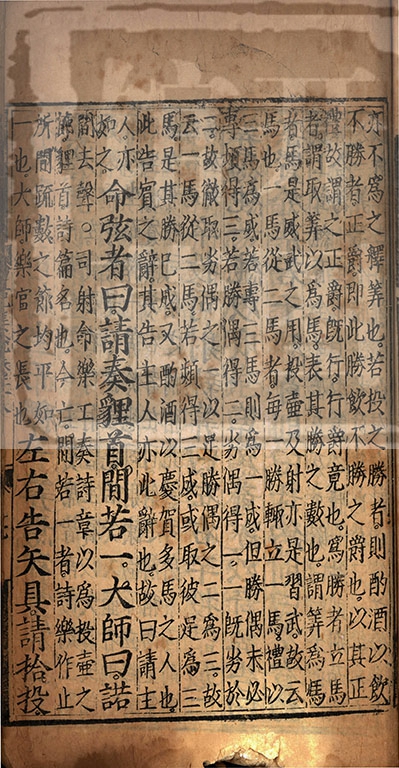 亦不爲之釋筭也。若投之勝者則酌酒以飲
不勝者。正爵即此勝飲不勝之爵也。以其正
禮故謂之正爵。旣行行爵竟也。爲勝者立馬
者謂取筭以爲馬。表其勝之數也。謂筭爲馬
者馬是威武之用。投壺及射亦是習武。故云
馬也。一馬從二馬者。每一勝輒立一馬。禮以
三馬爲成。若專三馬則爲一成。但勝偶未必
專頻得三。若勝偶得二。劣偶得一。一旣劣於
二。故徹取劣偶之一以足勝偶之二爲三。故
云一馬從二馬。若頻得三成或取彼足爲三
馬是其勝已成。又酌酒以慶賀多馬之人也。
此告賓之辭其告主人亦此辭也。故曰請主
人亦
如之。命弦者曰。請奏貍首。間若一。大師曰。諾
間去聲。○司射命樂工奏詩章以爲投壺之
節。貍首詩篇名也。今亡。間若一者。詩樂作止
所間疏數之節均平如
一也。大師樂官之長也。左右告矢具。請拾投。